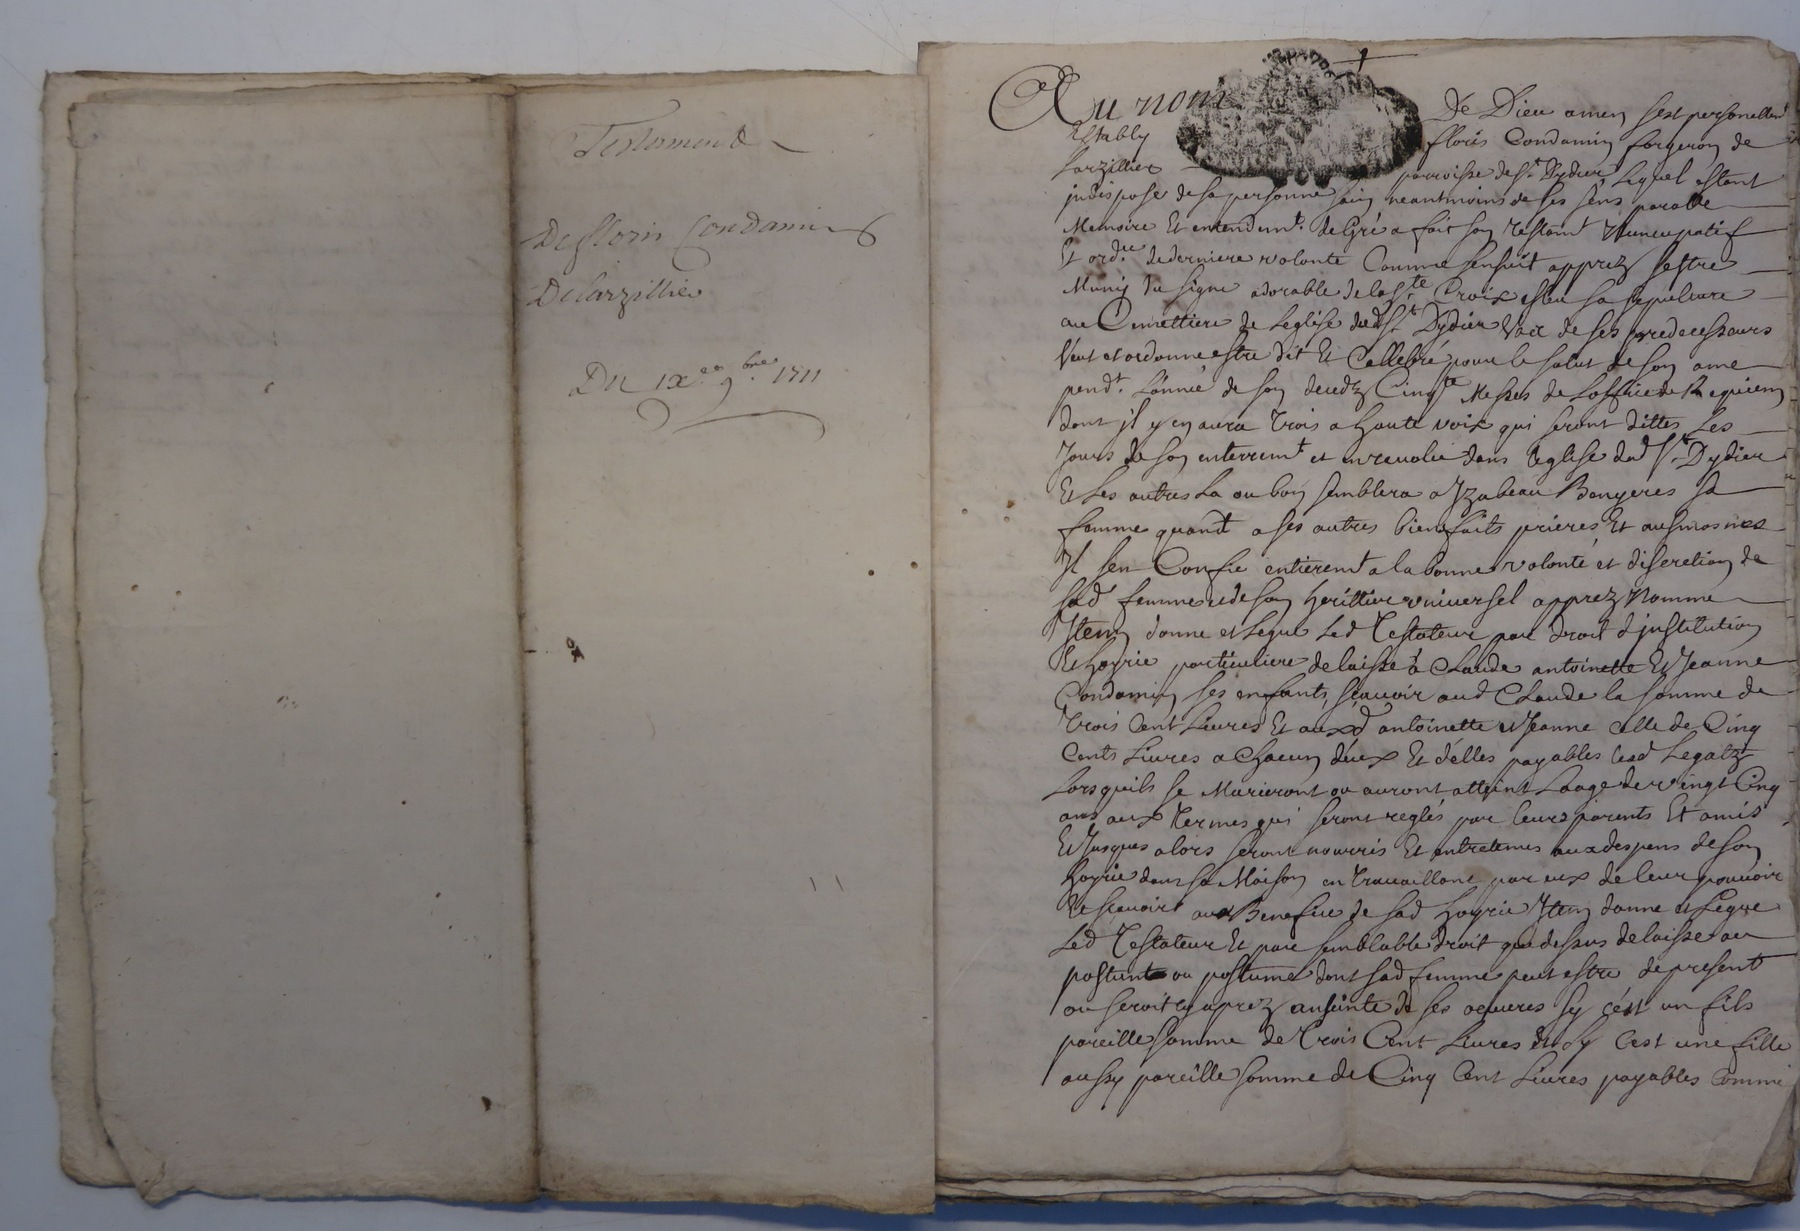 Testament
De floris Condamin
De Larzillier
Du ixe 9bre 1711
Au nom De Dieu amen sest personellemt
Establÿ floris Condamin forgeron de
Larzillier parroisse de St Dydier Lequel estant
jndisposé de sa personne sain neantmoins de ses sens parolle
Memoire Et entendemt. de gré a fait son testamt Nuncupatif
Et ordce de derniere volonté Comme sensuit apprez sestre
Muny du signe adorable de la Ste Croix esleu sa sepulture
au Cemettiere de Leglise dud St Dydier Vae de ses predecesseurs
Veut et ordonne estre dit Et Cellebré pour le salut de son ame
pendt. Lannée de son decedz Cinqte Messes de Loffice de Requiem
dont jl y en aura trois a haute voix qui seront dittes Les
Jours de son enterremt et en revolu dans leglise dud St Dydier
Et Les autres La ou bon semblera a Yzabeau Benyeres sa
femme quant a ses autres bienfaits prieres Et ausmosnes
Jl sen Confie entieremt a la bonne volonté et discretion de
sad femme et de son herittier universel apprez Nommé
Jtem donne et Legue Led Testateur par droit d'jnstitution
Et hoyrie particuliere delaisse à Claude antoinette Et Jeanne
Condamin ses enfants, scauoir aud Claude la somme de
Trois Cent Liures Et auxd antoinette et Jeanne celle de Cinq
Cents Liures a Chacun d'eux Et d'elles payables lesd Legatz
Lorsquils se Marieront ou auront atteint Laage de vingt Cinq
ans aux termes qui seront reglés par leurs parents Et amis
Et Jusques alors seront nourris Et entretenus aux despens de son
hoyrie dans sa Maison en travaillant par eux de leur pouuoir
Et scauoir au Benefice de sad hoyrie Jtem donne et Legue
Led Testateur Et par semblable droit que dessus delaisse au
postume ou postume dont sad femme peut estre de present
ou seroit cy aprez enseinte de ses oeuures sy c'est un fils
pareille somme de Trois Cent Liures et sy C'est une fille
aussy pareille somme de Cinq Cent Liures payables Comme